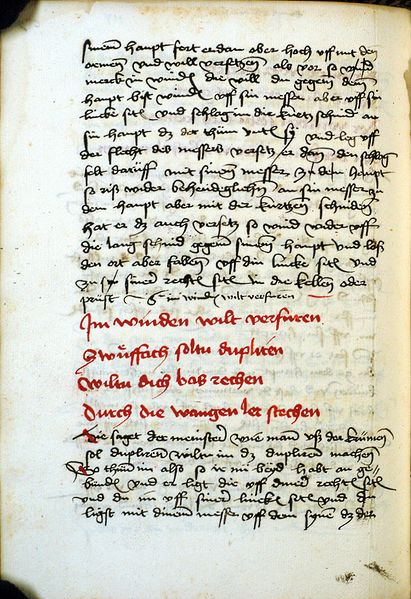 sinem haupt fert er dan aber hoch uff mit den
armen und will versetzen als vor so wind
merck im winden die will du gegem dem
haupt bist winden uff sin messer aber uff sin
lincke sitt und schlag in die kurtz schnid an
sin haupt dz der thum unden sy und leg uff
der flech des messers versetz er denn den schlag
felt daruff mit sinem messer zu dem haupt
so riß wider beheidiglichen an sin messer zu
dem haupt aber mit der kurtzen schniden
hat er dz auch versetz so wind wider uff
die lang schnid gegem sinem haupt und laß
den ort aber fallen uff din lincke sitt und
zu sin siner rechten sitt in die kellen oder
prust im winden wilt verfuren
Im winden wilt verfuren
Zwuffach soltu dupliren
Wiltu dich bas rechen
Durch die wangen ler stechen
Hie saget der meister wie man uß der krumen
sol dupliren wiltu im dz dupliren machen
So thum im also so ir mi beyd habt an ge
bunden und er ligt die uff diner rechten sitt
und du im uff siner lincken sitt und du
ligst mit dinem messer uff dem synen dz der